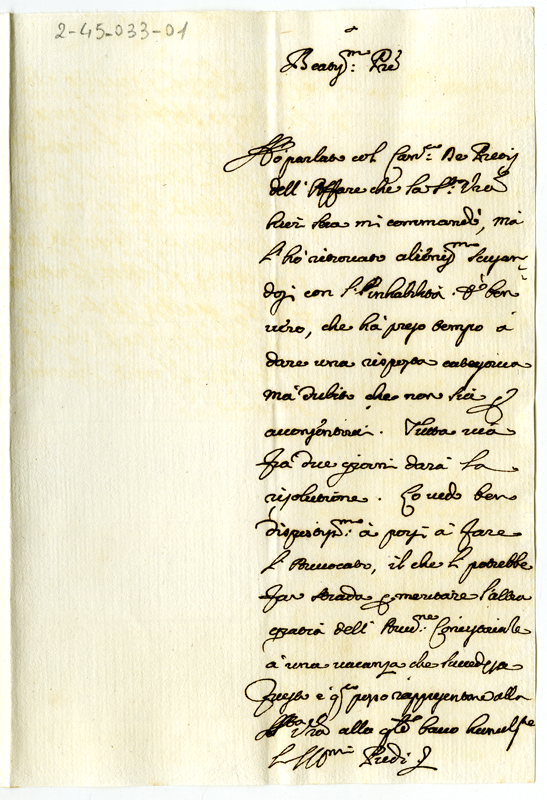 2-45-033-01
Beatiss.mo Pre
Hò parlato col Can.co De Predij
dell'Affare che la S.tà V.ra
hieri sera mi commandò, mà
l'hò ritrovato alieniss.mo scusan-
dosi con l'inhabilità. È ben
vero, che hà preso tempo à
dare una risposta cathegorica
mà dubito che non sia p
acconsentirvi. Tutta via
frà due giorni darà la
risolutione. Lo vedo ben
dispostiss.mo à porsi à fare
l'Avvocato, il che li potrebbe
far strada p meritare l'altra
gratia dell'Avv.ne Concistoriale
à una vacanza che succedesse
Questo è q.to posso rappresentare alla
S.tà V.ra alla q.le bacio humilm.te
li SS.mi Piedi